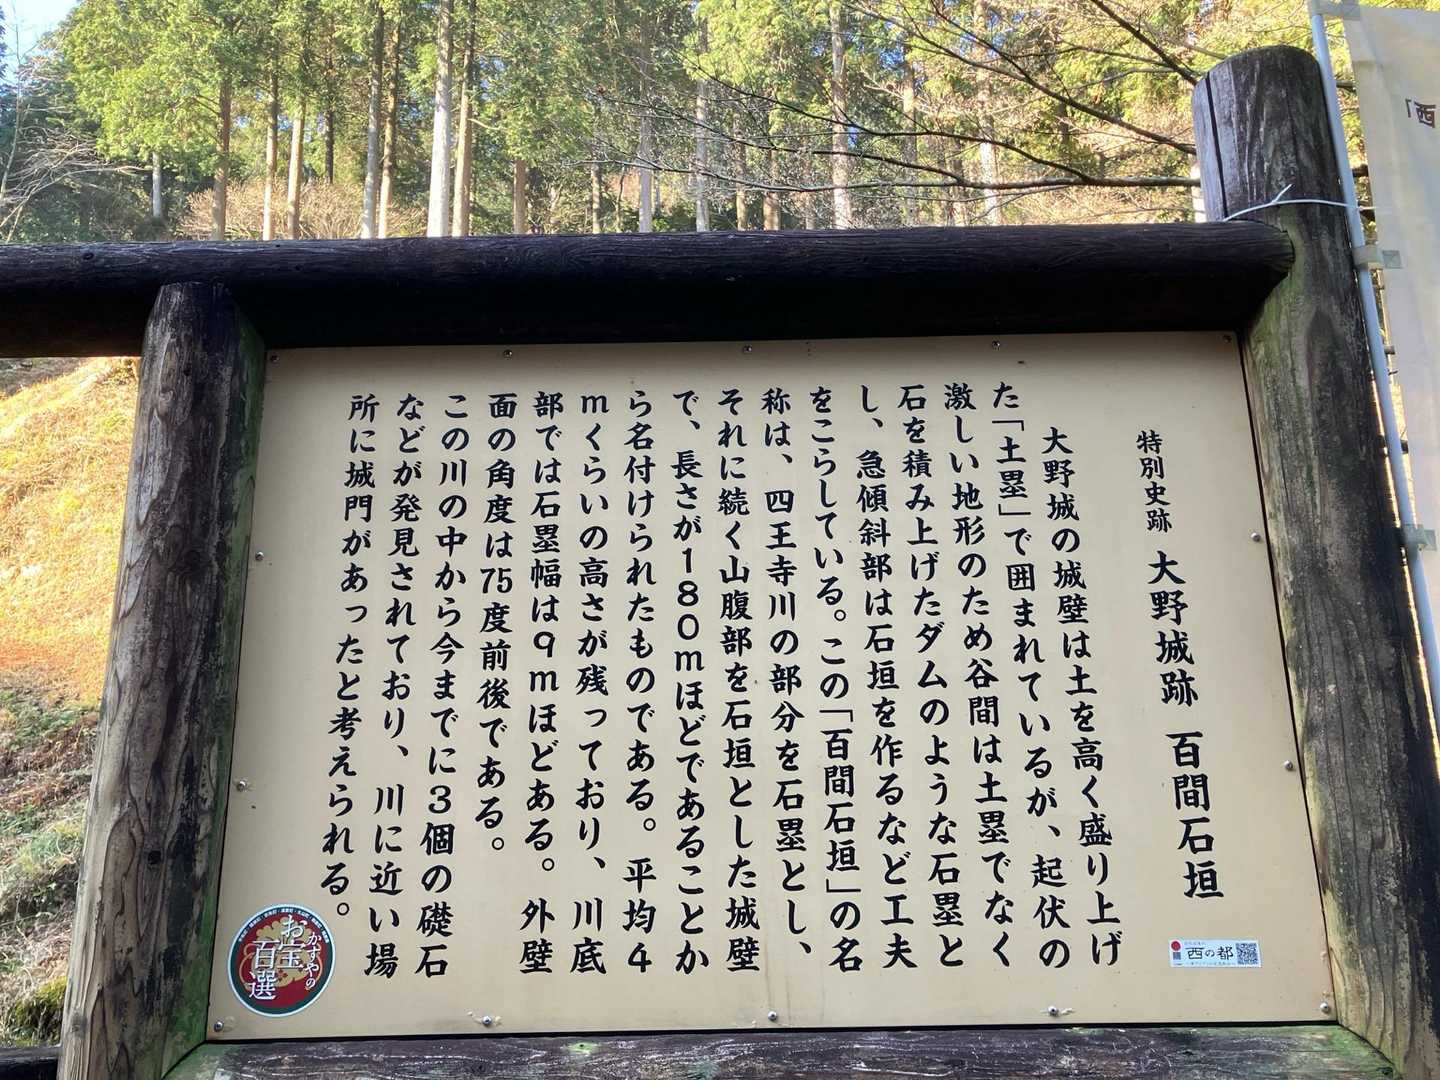 特別史跡 大野城跡 百間石垣
大野城の城壁は土を高く盛り上げ
た「土塁」で囲まれているが、起伏の
激しい地形のため谷間は土塁でなく
石を積み上げたダムのような石塁と
し、急傾斜部は石垣を作るなど工夫
をこらしている。この「百間石垣」の名
称は、四王寺川の部分を石塁とし、
それに続く山腹部を石垣とした城壁
で、長さが180mほどであることか
ら名付けられたものである。平均4
mくらいの高さが残っており、川底
部では石塁幅は9mほどある。外壁
面の角度は75度前後である。
この川の中から今までに3個の礎石
などが発見されており、川に近い場
所に城門があったと考えられる。
かすやの
お宝
百選
西の都
「西